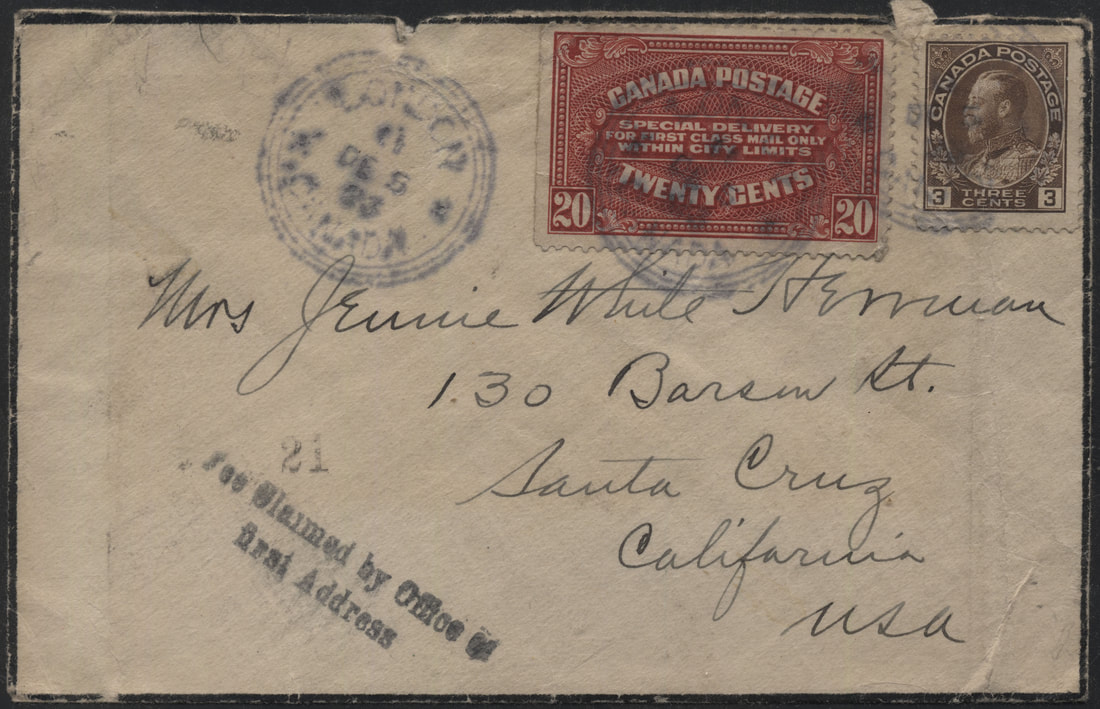 LONDON
DE 5
23
CANADA
CANADA POSTAGE
SPECIAL DELIVERY
FOR FIRST CLASS MAIL ONLY
WITHIN CITY LIMITS
TWENTY CENTS
20 20
CANADA POSTAGE
3 THREE CENTS 3
Mrs Jennie White Herrman
130 Barson St.
Santa Cruz
California
USA
21
Fee Claimed by Office of
first Address